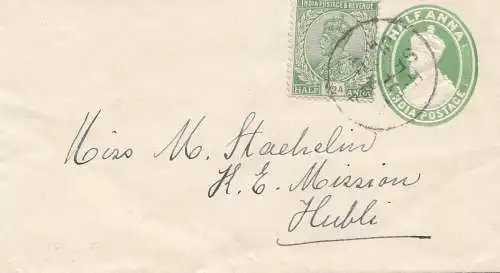 INDIA POSTAGE & REVENUE
HALF ANNA
HALF ANNA
INDIA POSTAGE
Miss M. Staehelin
K. E. Mission
Hubli